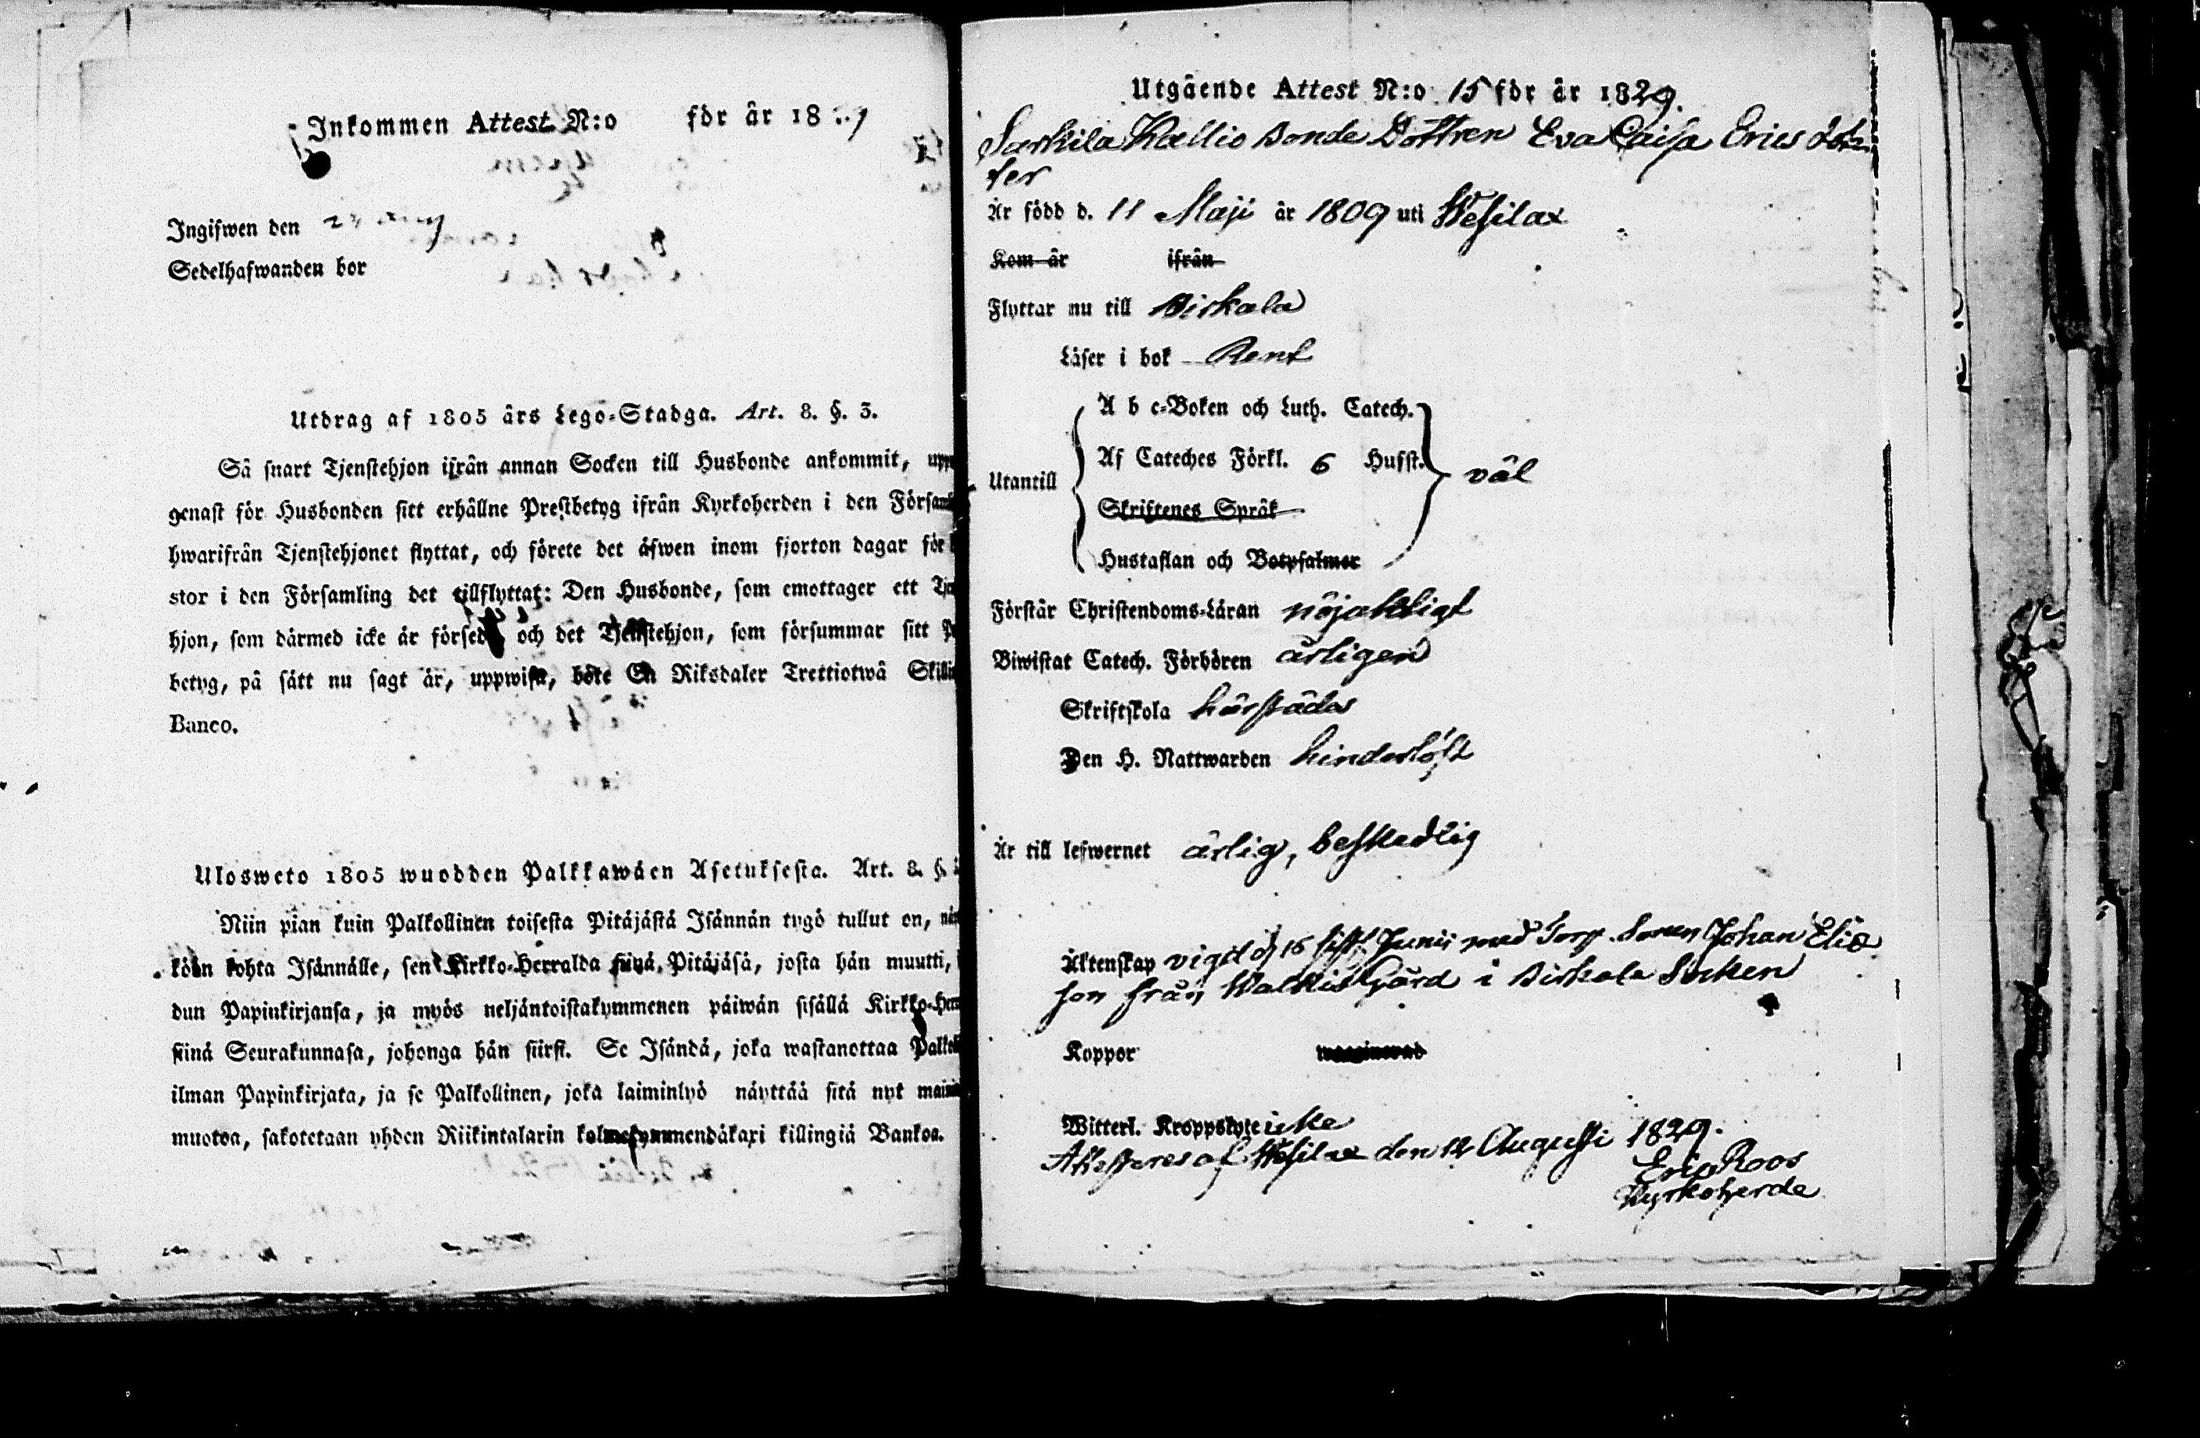 Inkommen Attest N:o för år 18
Ingifwen den
Sedelhafwanden bor
Utdrag af 1805 års Lego-Stadga. Art. 8. §. 3.
Så snart Tjenstehjon ifrån annan Socken till Husbonde ankommit,
genast för Husbonden sitt erhållne Prestbetyg ifrån Kyrkoherden i den
hwarifrån Tjenstehjonet flyttat, och förete det äfwen inom fjorton dagar för
stor i den Församling det tillflyttat: Den Husbonde, som emottager ett
hjon, som därmed icke är försedt och det Tjenstehjon, som försummar sitt
betyg, på sätt nu sagt är, uppwisa, böte En Riksdaler Trettiotwå
Banco.
Ulosweto 1805 wuodden Palkkawäen Asetuksesta. Art. 8. §.
Niin pian kuin Palkollinen toisesta Pitäjästä Isännän tygö tullut on,
kään kohta Isännälle, sen Kirkko-Herralda siinä Pitäjäsä, josta hän muutti,
dun Papinkirjansa, ja myös neljäntoistakymmenen päiwän sisällä
siinä Seurakunnasa, johonga hän siirsi. Se Isändä, joka wastanottaa
ilman Papinkirjata, ja se Palkollinen, joka laiminlyö näyttää sitä nyt
muotoa, sakotetaan yhden Riikintalarin kolmekymmendäkaxi killingiä Bankoa.
Utgående Attest N:o 15 för år 1829.
Sarkila Kallio Bonde Dottren Eva Caisa Erics dot-
ter
Är född d. 11 Maji år 1809 uti Wesilax
Kom år ifrån
Flyttar nu till Birkala
Läser i bok Rent
A b c-Boken och Luth. Catech.
Af Cateches Förkl. 6 Hufst.
Utantill väl
Skriftenes Språk
Hustaflan och Botpsalmer
Förstår Christendoms-Läran nöjaktligt
Biwistat Catech. Förhören årligen
Skriftskola härstädes
Den H. Nattwarden hinderlöst
Är till lefwernet ärlig, beskedlig
Äktenskap vigd d 16 sistl. Junii med Torp. Sonen Johan Elias
son från Walkis Gård i Birkala Socken
Koppor
Witterl. Kroppslyte icke
Attesteres af Wesilax den 12 Augusti 1829.
Eric Roos
Kyrkoherde